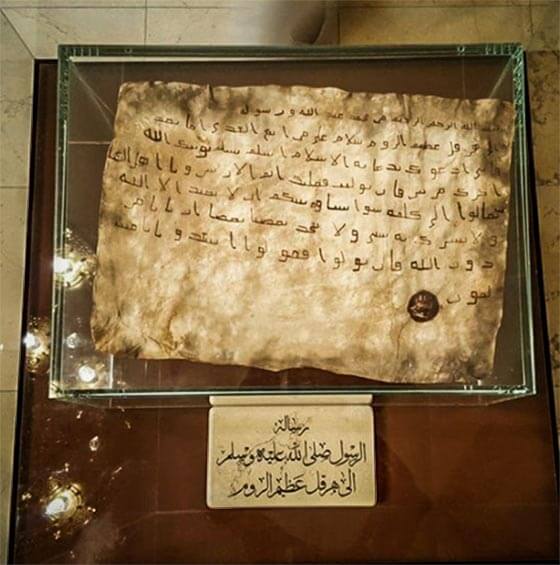 بسم الله الرحمن الرحيم من محمد عبد الله ورسوله
الى هرقل عظيم الروم سلام على من اتبع الهدى اما بعد
فانى ادعوك بدعاية الاسلام اسلم تسلم يوتك الله
اجرك مرتين فان توليت فعليك اثم الاريسين ويا اهل الكتاب
تعالوا الى كلمة سوا بيننا وبينكم ان لا نعبد الا الله
ولا نشرك به شيا ولا يتخذ بعضنا بعضا اربابا من
دون الله فان تولوا فقولوا اشهدوا بانا مس
لمون
رسالة
الرسول صلى الله عليه وسلم
الى هرقل عظيم الروم